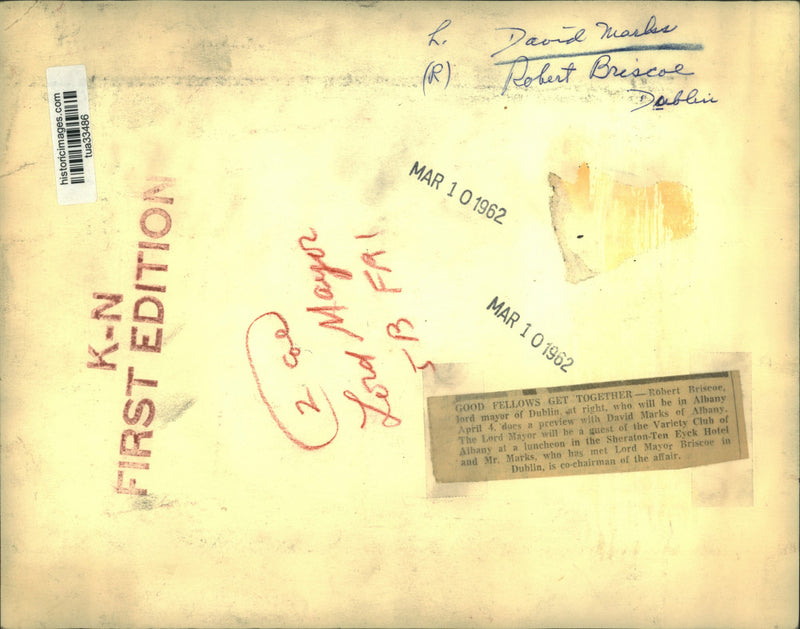 L. David Marks
(R) Robert Briscoe
Dublin
historicimages.com
tua33486
MAR 10 1962
K-N
FIRST EDITION
2 col
Lord Mayor
5B FRI
MAR 10 1962
GOOD FELLOWS GET TOGETHER — Robert Briscoe,
lord mayor of Dublin, at right, who will be in Albany
April 4, does a preview with David Marks of Albany.
The Lord Mayor will be a guest of the Variety Club of
Albany at a luncheon in the Sheraton-Ten Eyck Hotel
and Mr. Marks, who has met Lord Mayor Briscoe in
Dublin, is co-chairman of the affair.